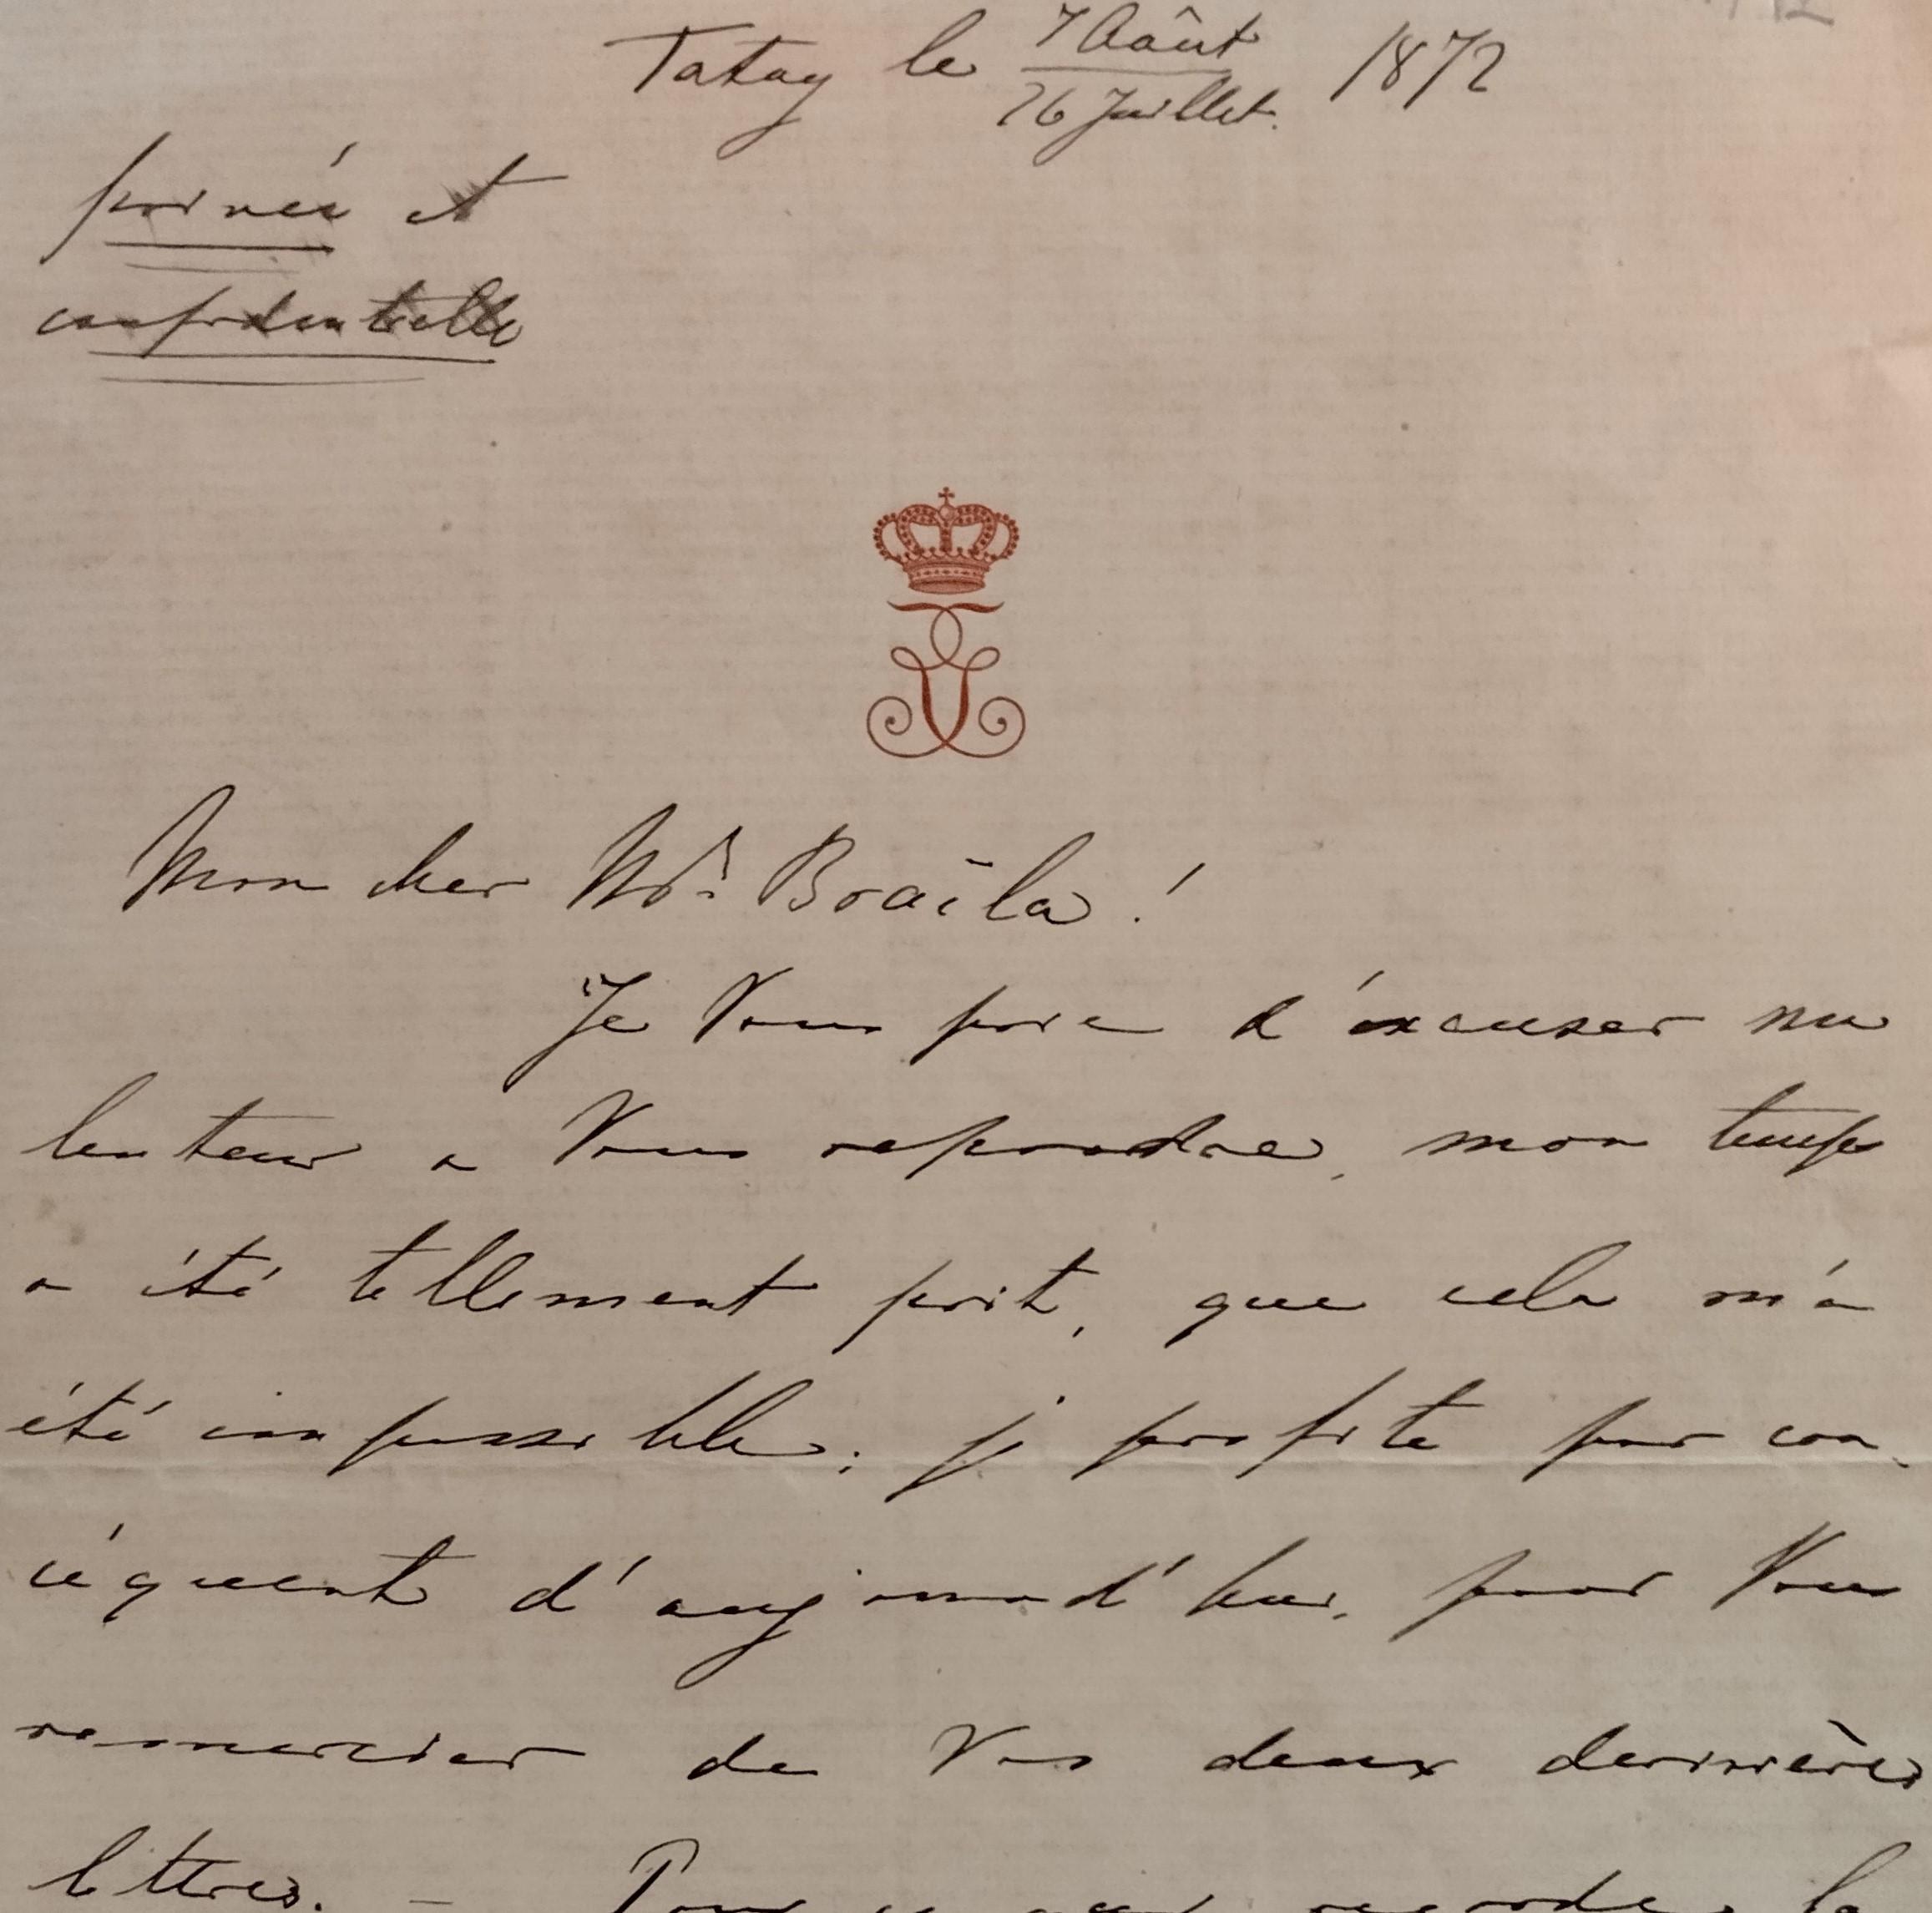 Tatoy le 7 Août 1872
26 Juillet.
privée et
confidentielle
Mon cher Mr. Braïla !
Je Vous prie d'éxcuser ma
lenteur a Vous repondre, mon temps
a été tellement prit, que cela m'a
été impossible; je profite par con-
céquent d'aujourd'hui, pour Vous
remercier de Vos deux dernières
lettres. — Pour ce qui regarde la